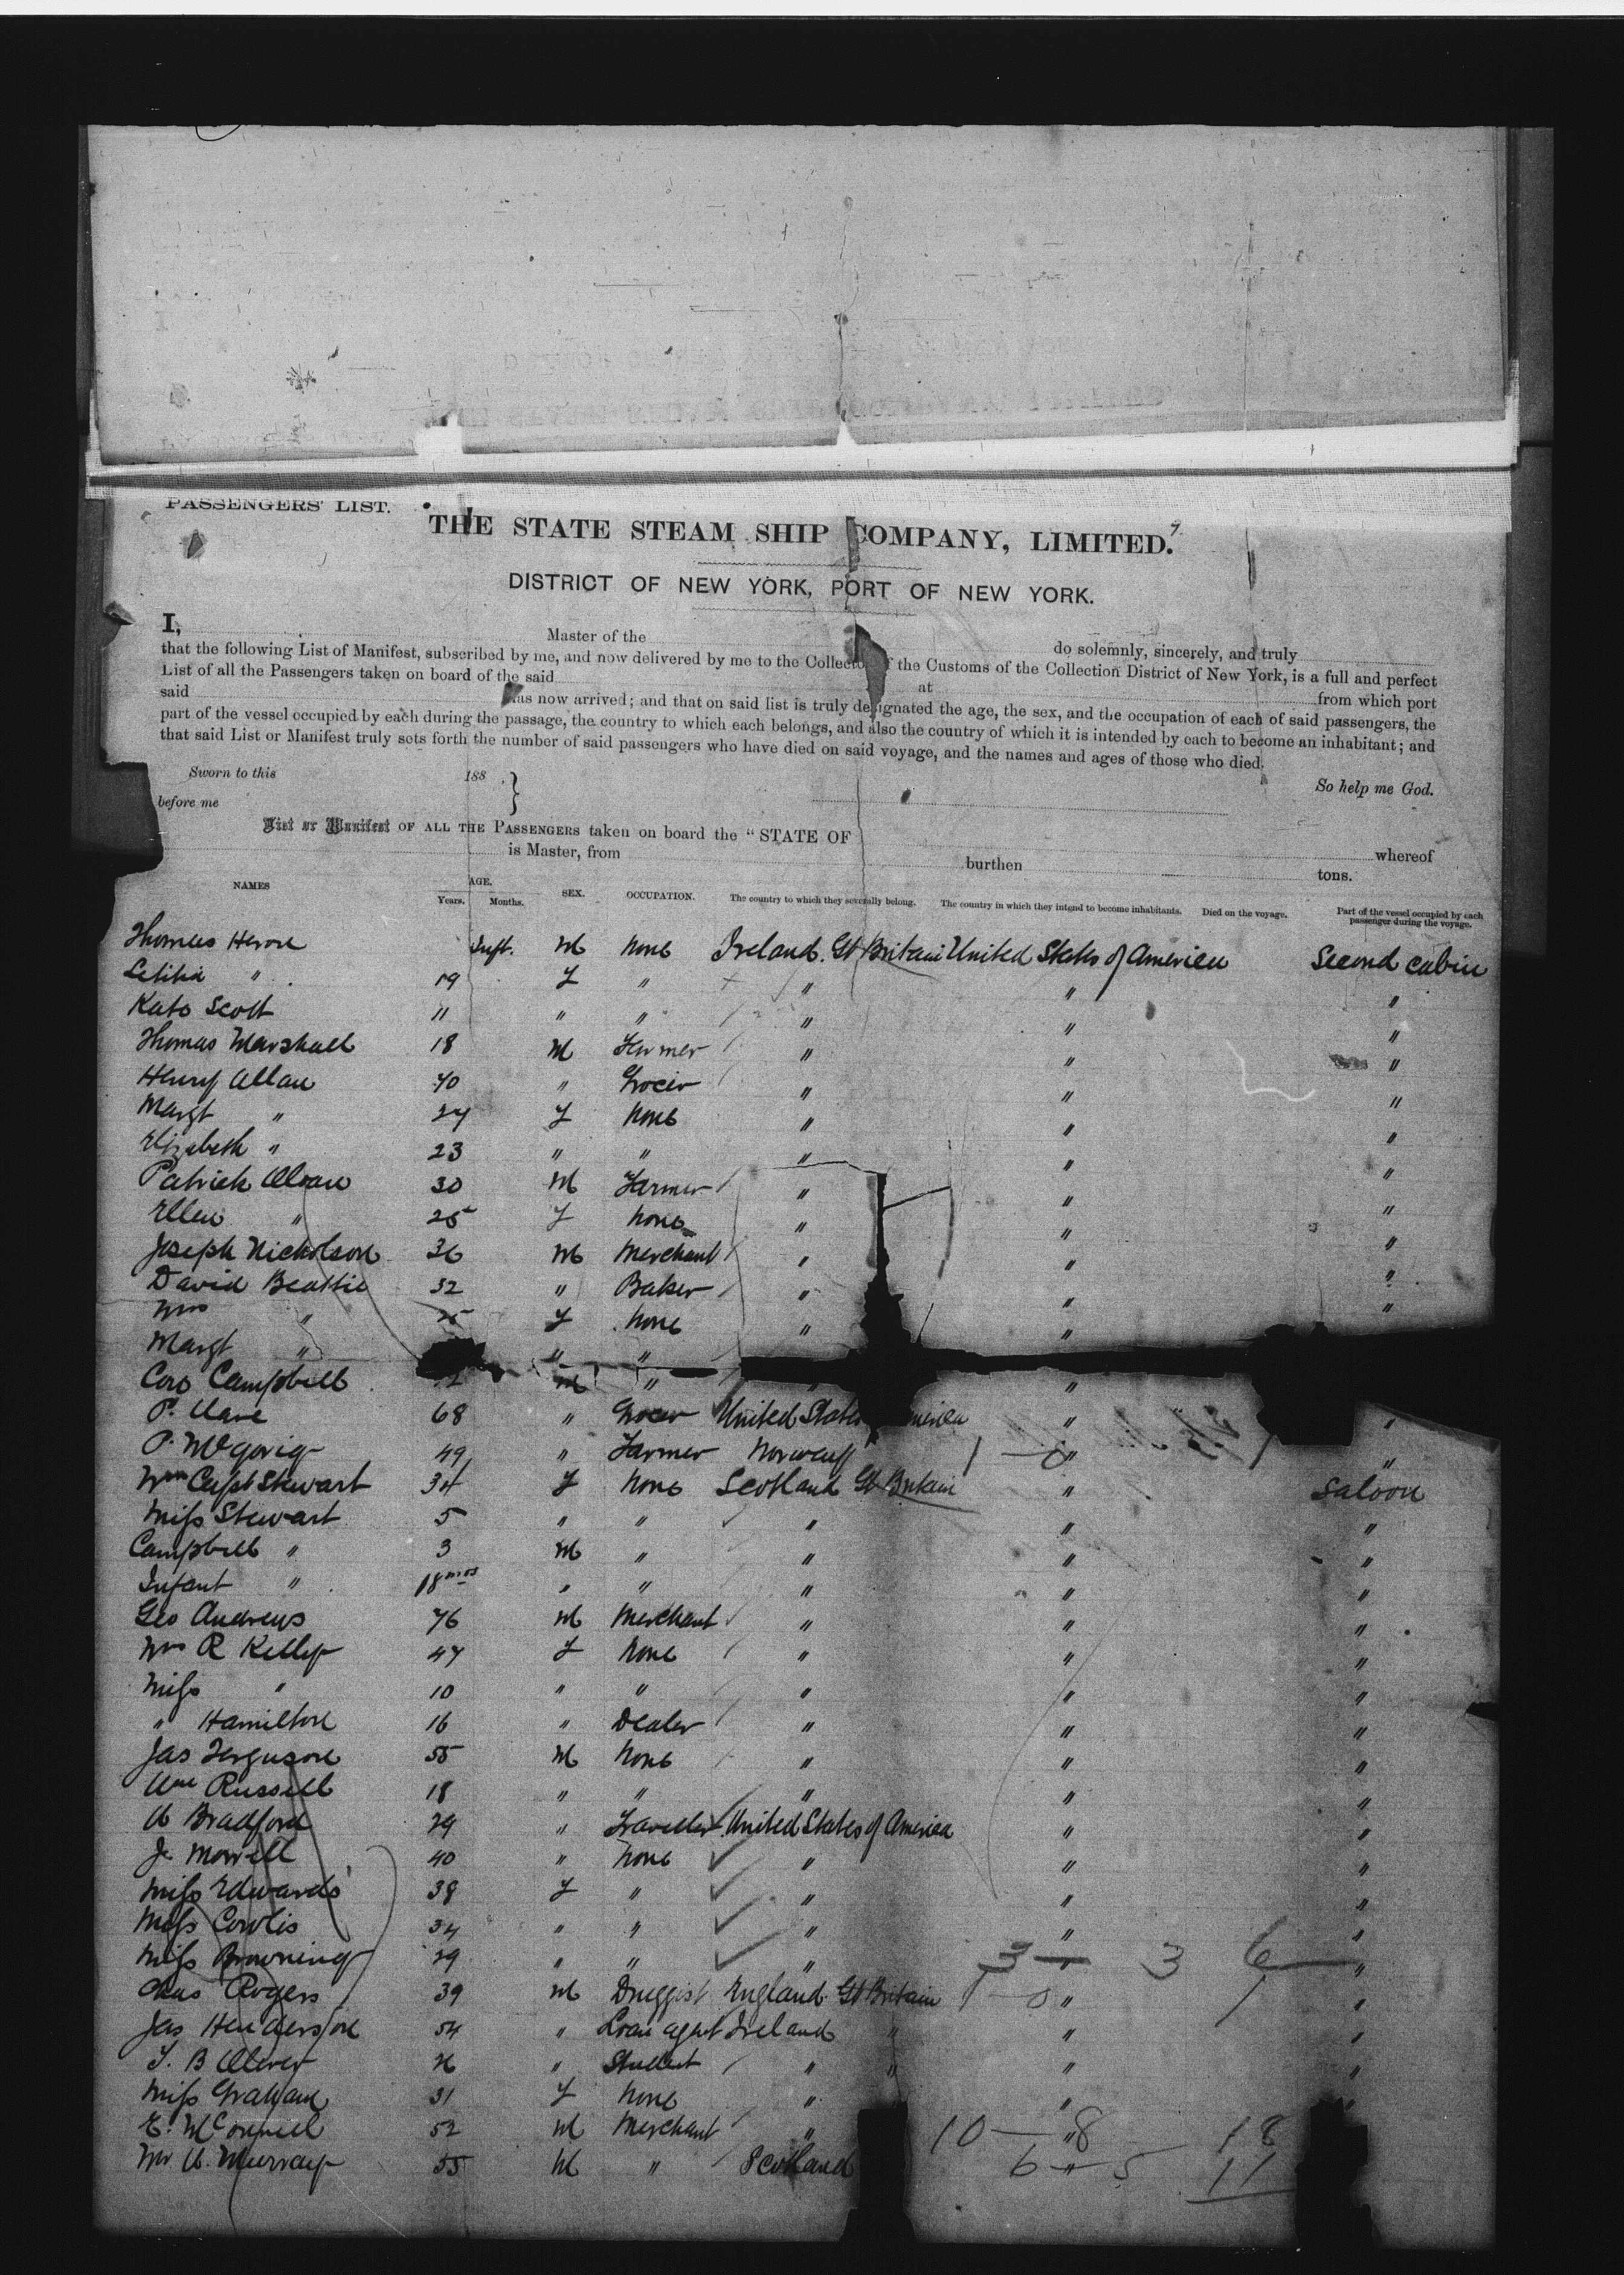 PASSENGERS' LIST.
THE STATE STEAM SHIP COMPANY, LIMITED.
DISTRICT OF NEW YORK, PORT OF NEW YORK.
I, Master of the do solemnly, sincerely, and truly
that the following List of Manifest, subscribed by me, and now delivered by me to the Collector of the Customs of the Collection District of New York, is a full and perfect
List of all the Passengers taken on board of the said at from which port
said has now arrived; and that on said list is truly designated the age, the sex, and the occupation of each of said passengers, the
part of the vessel occupied by each during the passage, the country to which each belongs, and also the country of which it is intended by each to become an inhabitant; and
that said List or Manifest truly sets forth the number of said passengers who have died on said voyage, and the names and ages of those who died.
Sworn to this 188 } So help me God.
before me
List or Manifest OF ALL THE PASSENGERS taken on board the "STATE OF whereof
is Master, from burthen tons.
NAMES AGE. Years. Months. SEX. OCCUPATION. The country to which they severally belong. The country in which they intend to become inhabitants. Died on the voyage. Part of the vessel occupied by each passenger during the voyage.
Thomas Inft. M None Ireland. Gt Britain United States of America Second cabin
Letitia " 19 F " " " "
Kate Scott 11 " " " " "
Thomas Marshall 18 M Farmer " " "
Henry Allan 40 " Grocer " " "
Margt " 24 F None " " "
Elizabeth " 23 " " " " "
Patrick 30 M Farmer " " "
Ellen " 25 F None " " "
Joseph Nicholson 36 M Merchant " " "
David Beattie 32 " Baker " " "
Mrs " 25 F None " " "
Margt " " "
Campbell M " " "
P. 68 " Grocer United States America " "
P. 49 " Farmer Norway 1 — 0 " "
Mrs Capt Stewart 34 F None Scotland Gt Britain " Saloon
Miss Stewart 5 " " " " "
Campbell " 3 M " " " "
Infant " 18 mos " " " " "
Geo Andrews 76 M Merchant " " "
Mrs R Kelly 47 F None " " "
Miss " 10 " " " " "
" Hamilton 16 " Dealer " " "
Jas Ferguson 55 M None " " "
Wm Russell 18 " " " " "
A Bradford 29 " Traveller United States of America " "
J. Morrell 40 " None " " "
Miss Edwards 38 F " " " "
Miss 34 " " " " "
Miss Browning 29 " " " 3 — " 3 6 "
Chas Rogers 39 M Druggist England Gt Britain 1 — 0 " 1 "
Jas Henderson 54 " Loan agent Ireland " " "
T. B Oliver 26 " Student " " " "
Miss Graham 31 F None " " "
E. McConnell 52 M Merchant " 10 — " 8 18
Mr A. Murray 55 M " Scotland 6 — " 5 11